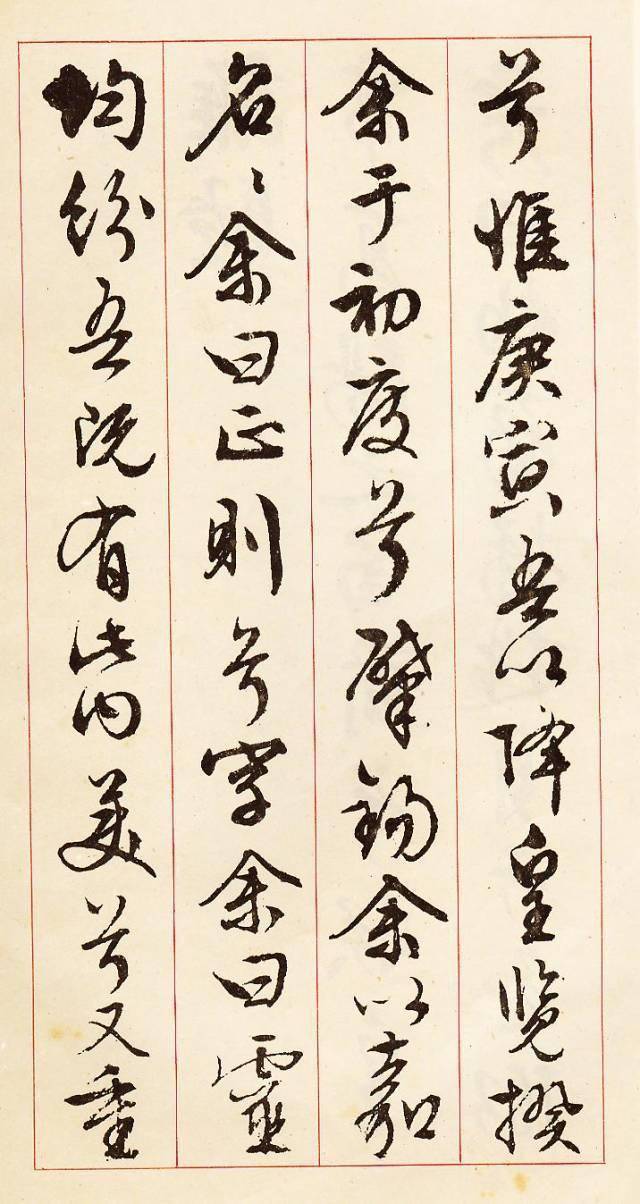 兮惟庚寅吾以降皇览揆
余于初度兮肇锡余以嘉
名名余曰正则兮字余曰靈
均纷吾既有此内美兮又重